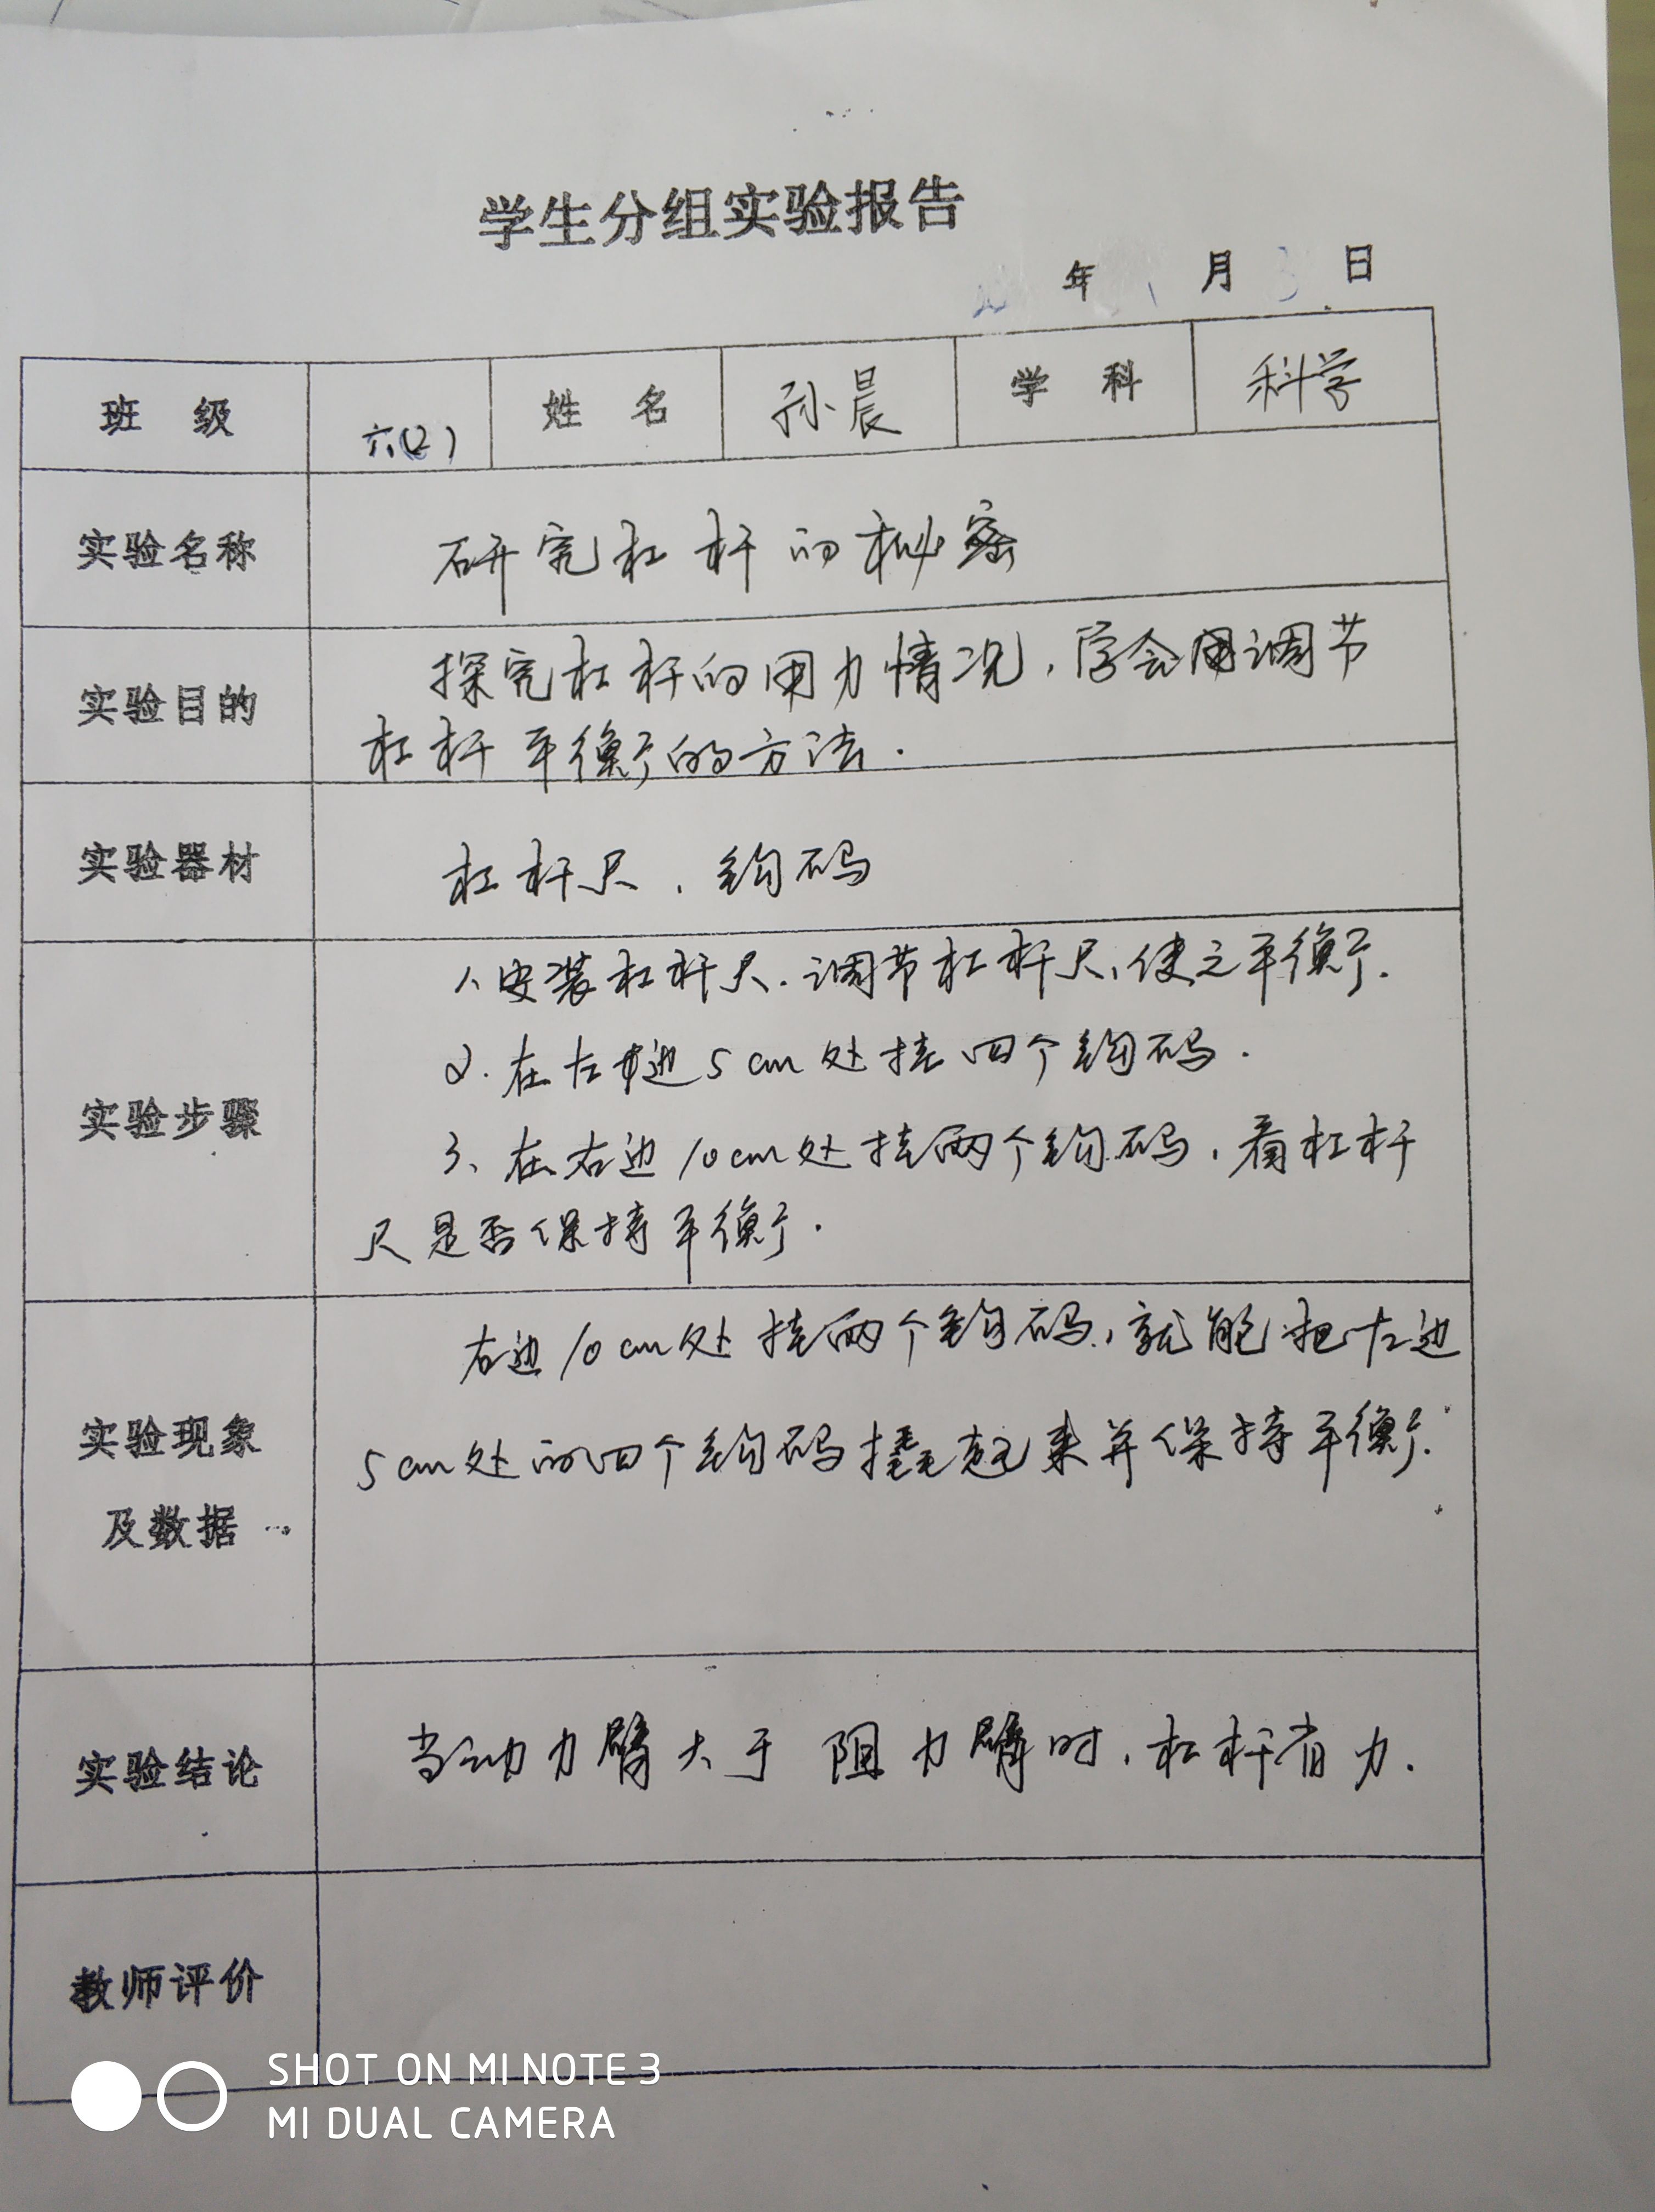 学生分组实验报告
年 月 日
班 级 六(2) 姓 名 孙晨 学 科 科学
实验名称 研究杠杆的秘密
实验目的 探究杠杆的用力情况,学会用调节
杠杆平衡的方法.
实验器材 杠杆尺、钩码
实验步骤
1、安装杠杆尺.调节杠杆尺,使之平衡.
2.在左边5cm处挂四个钩码.
3、在右边10cm处挂两个钩码,看杠杆
尺是否保持平衡.
实验现象
及数据
右边10cm处挂两个钩码,就能把左边
5cm处的四个钩码撬起来并保持平衡.
实验结论 当动力臂大于阻力臂时,杠杆省力.
教师评价
SHOT ON MI NOTE 3
MI DUAL CAMERA